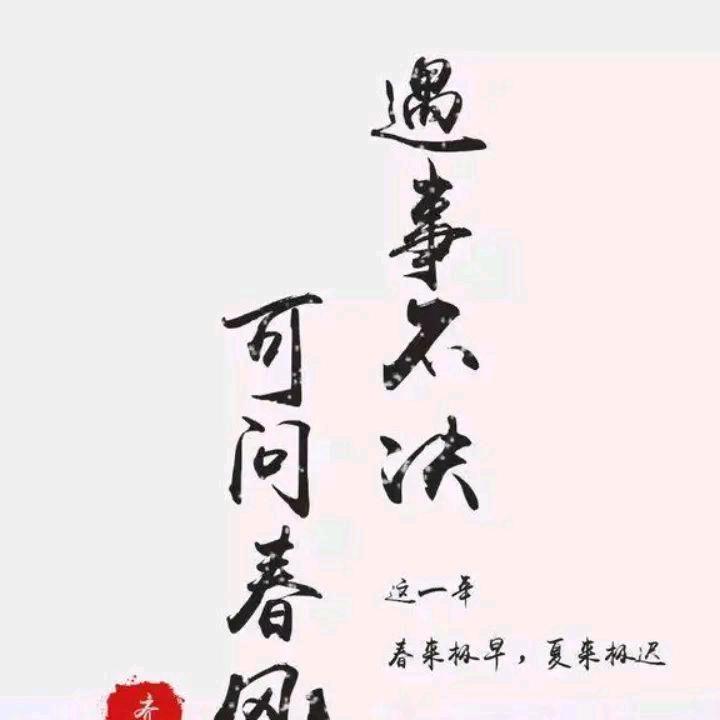 遇事不决
可问春风
这一年
春来极早，夏来极迟
齐